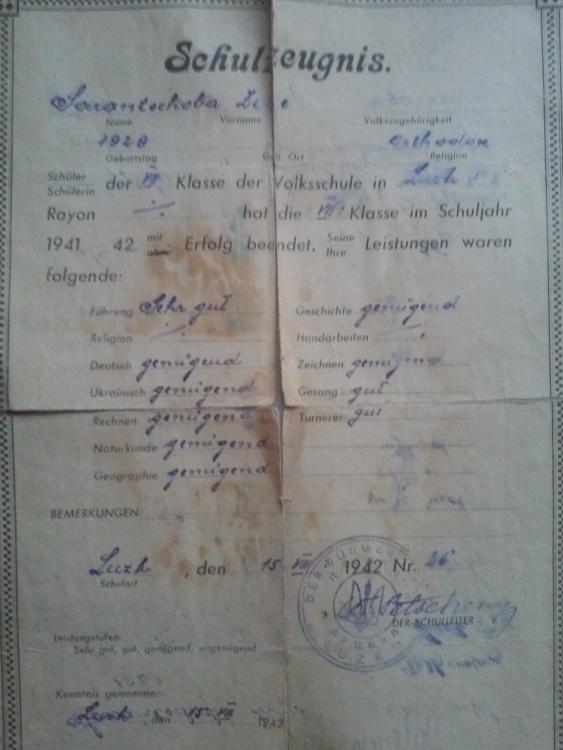 Schulzeugnis.
Sarantschoba
Name Vorname Volkszugehörigkeit
1929 Orthodox
Geburtstag Geb. Ort Religion
Schüler
Schülerin der VII Klasse der Volksschule in Luzk
Rayon hat die VII. Klasse im Schuljahr
1941 42 mit
ohne Erfolg beendet. Seine
Ihre Leistungen waren
folgende:
Führung Sehr gut Geschichte genügend
Religion Handarbeiten
Deutsch genügend Zeichnen genügend
Ukrainisch genügend Gesang gut
Rechnen genügend Turnerei gut
Naturkunde genügend
Geographie genügend
BEMERKUNGEN:
Luzk, den 15 VIII 1942 Nr. 26
Schulort
DER SCHULLEITER
Leistungstufen:
Sehr gut, gut, genügend, ungenügend
Kenntnis genommen:
Luzk den 15 VIII 1942